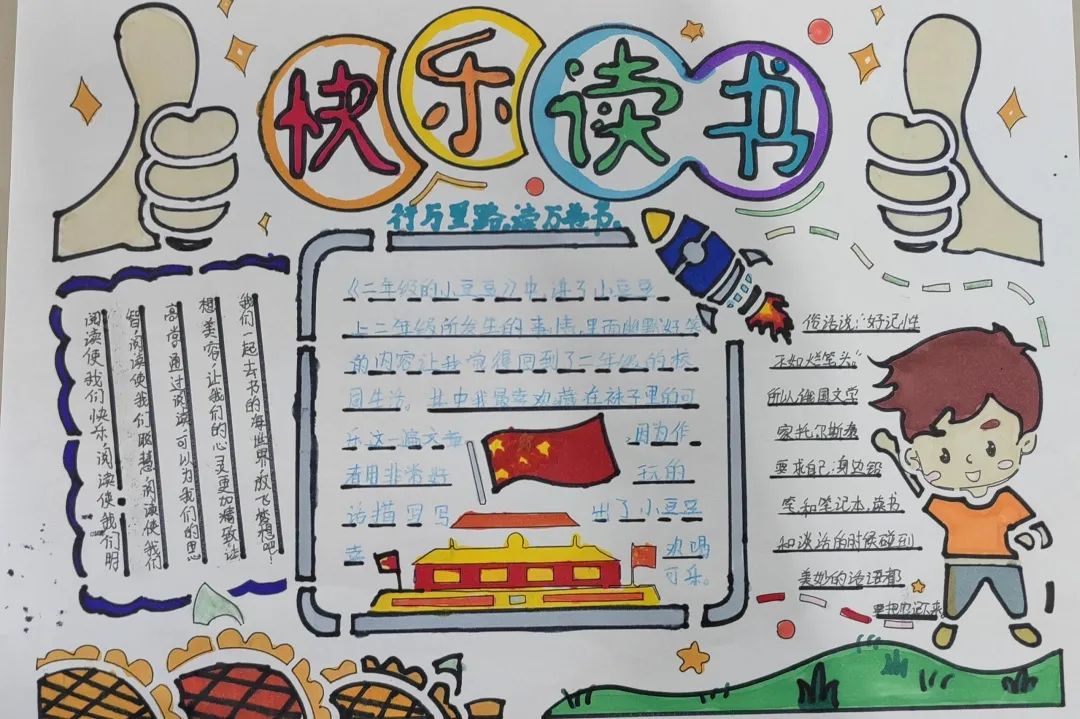 快乐读书
行万里路。读万卷书。
阅读使我们快乐,阅读使我们明
智,阅读使我们聪慧,阅读使我们
高尝通过阅读,可以为我们的思
想美容,让我们的心灵更加精致,让
我们一起去书的海世界放飞梦想吧!
《二年级的小豆豆》中,讲了小豆豆
上二年级所发生的事情,里面幽默好笑
的内容让我觉得回到了二年级的校
园生活。其中我最喜欢藏在袜子里的可
乐这一篇文章,因为作
者用非常好玩的
话描写写出了小豆豆
喜欢喝
可乐。
俗话说:“好记性
不如烂笔头”
所以俄国文学
家托尔斯泰
要求自己:身边铅
笔和笔记本,读书
和谈话的时候碰到
美妙的话语都
要把他记下来。